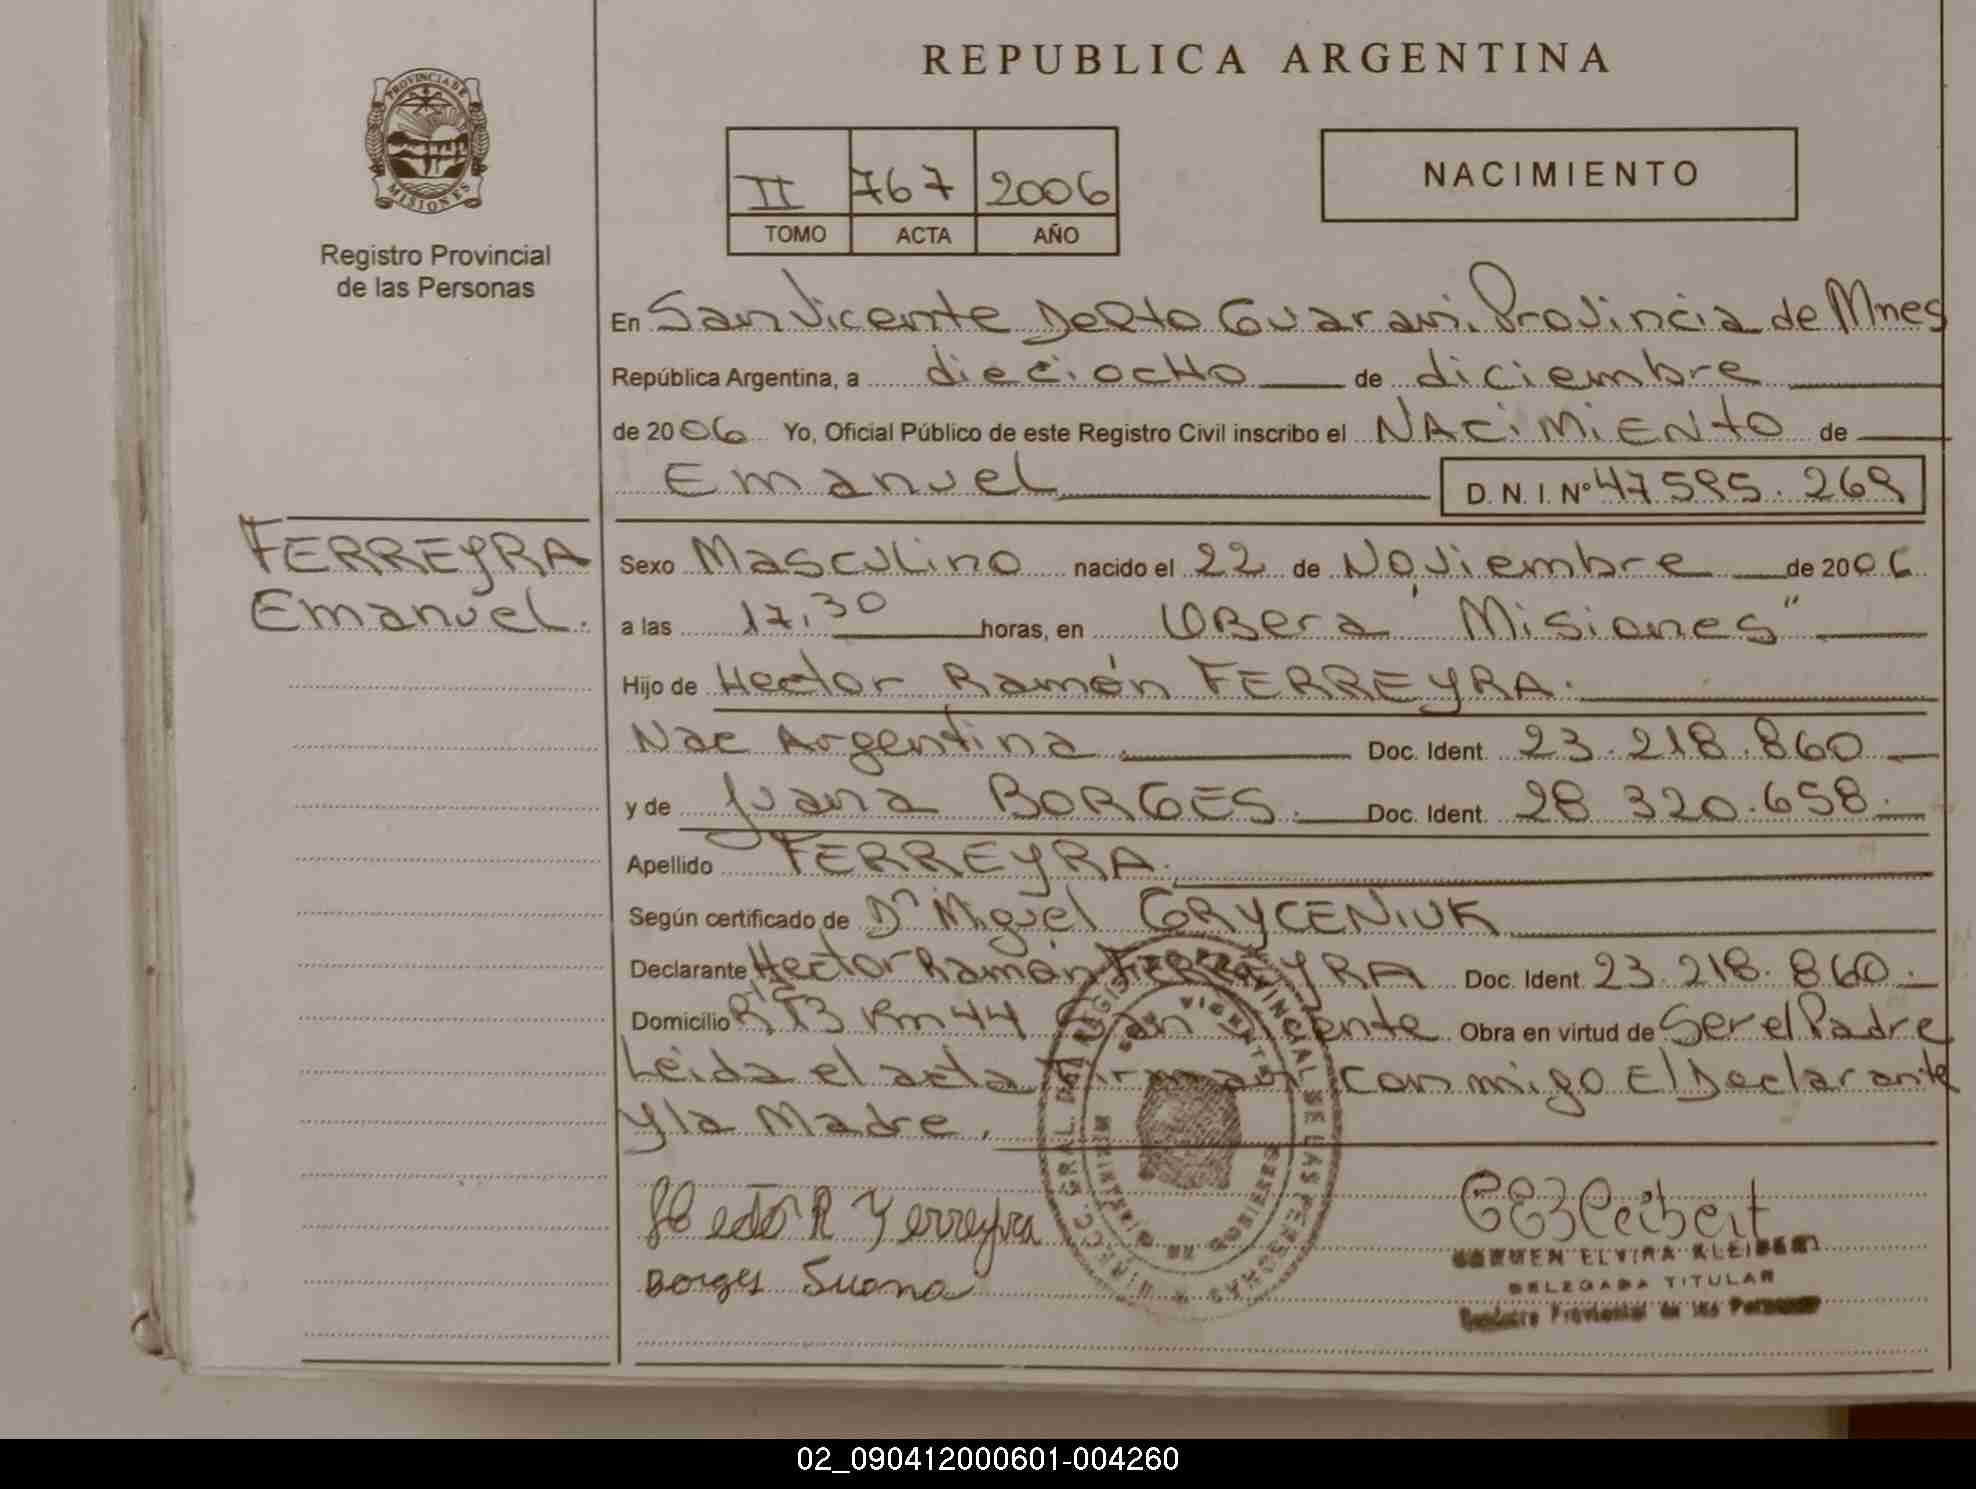 PROVINCIA DE
MISIONES
Registro Provincial
de las Personas
REPUBLICA ARGENTINA
II 767 2006
TOMO ACTA AÑO
NACIMIENTO
En San Vicente Depto Guarani. Provincia de Mnes
República Argentina, a dieciocho de diciembre
de 2006 Yo, Oficial Público de este Registro Civil inscribo el NACIMIENTO de
Emanuel D. N. I. Nº 47595.269
FERREYRA
Emanuel.
Sexo Masculino nacido el 22 de Noviembre de 2006
a las 17,30 horas, en Obera "Misiones"
Hijo de Hector Ramón FERREYRA.
Nac Argentina Doc. Ident. 23.218.860
y de Juana BORGES. Doc. Ident. 28 320.658.
Apellido FERREYRA.
Según certificado de Dr Miguel GRYCENIUK
Declarante Hector Ramón FERREYRA Doc. Ident. 23.218.860.
Domicilio Km 44 San Vicente Obra en virtud de Ser el Padre
Leida el acta Firman conmigo El Declarante
y la Madre.
Hector R Ferreyra
Borges Juana
CARMEN ELVIRA
DELEGADA TITULAR
Registro Provincial de las Personas
02_090412000601-004260